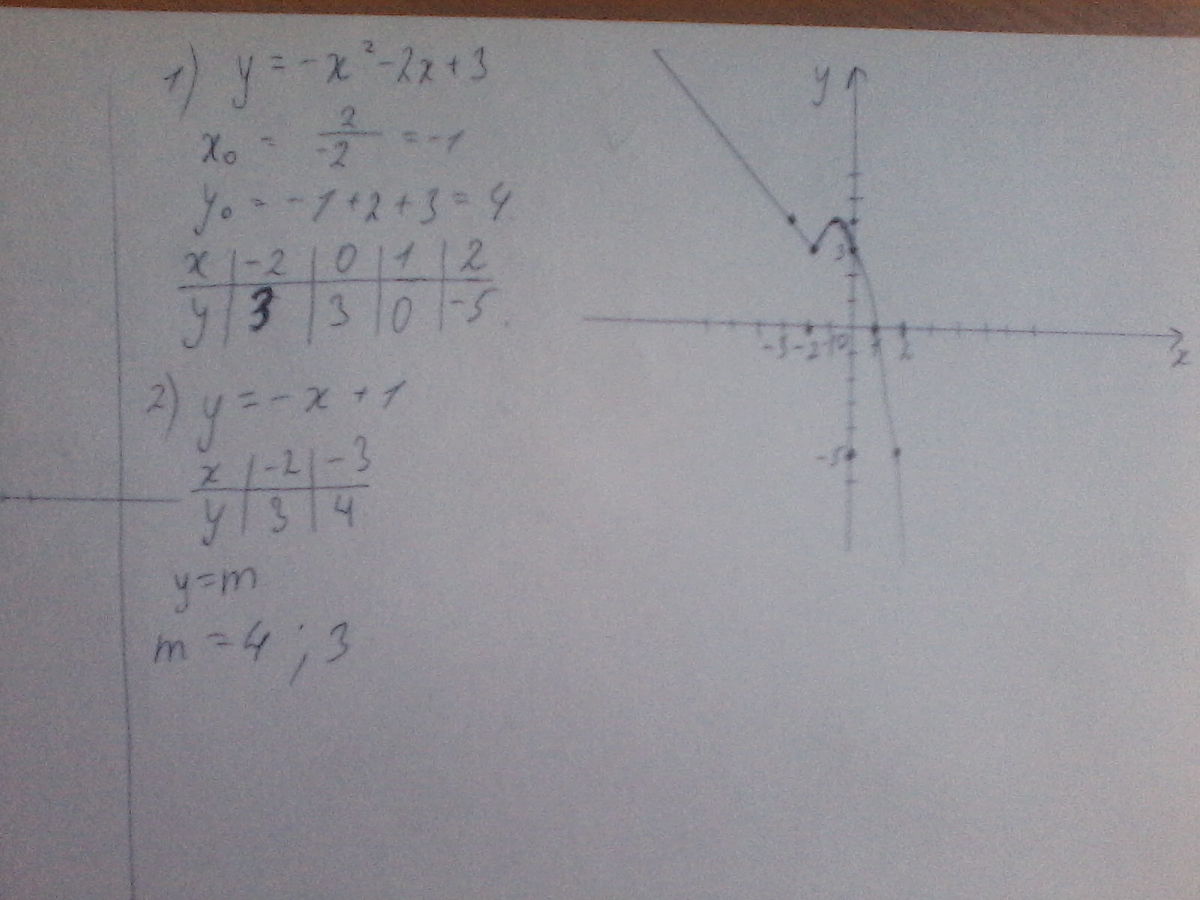 1) y = -x² - 2x + 3
x₀ = 2/-2 = -1
y₀ = -1 + 2 + 3 = 4
x | -2 | 0 | 1 | 2
y | 3 | 3 | 0 | -5
2) y = -x + 1
x | -2 | -3
y | 3 | 4
y = m
m = 4 ; 3
y
3
-3 -2 -1 0 1 2
x
-5